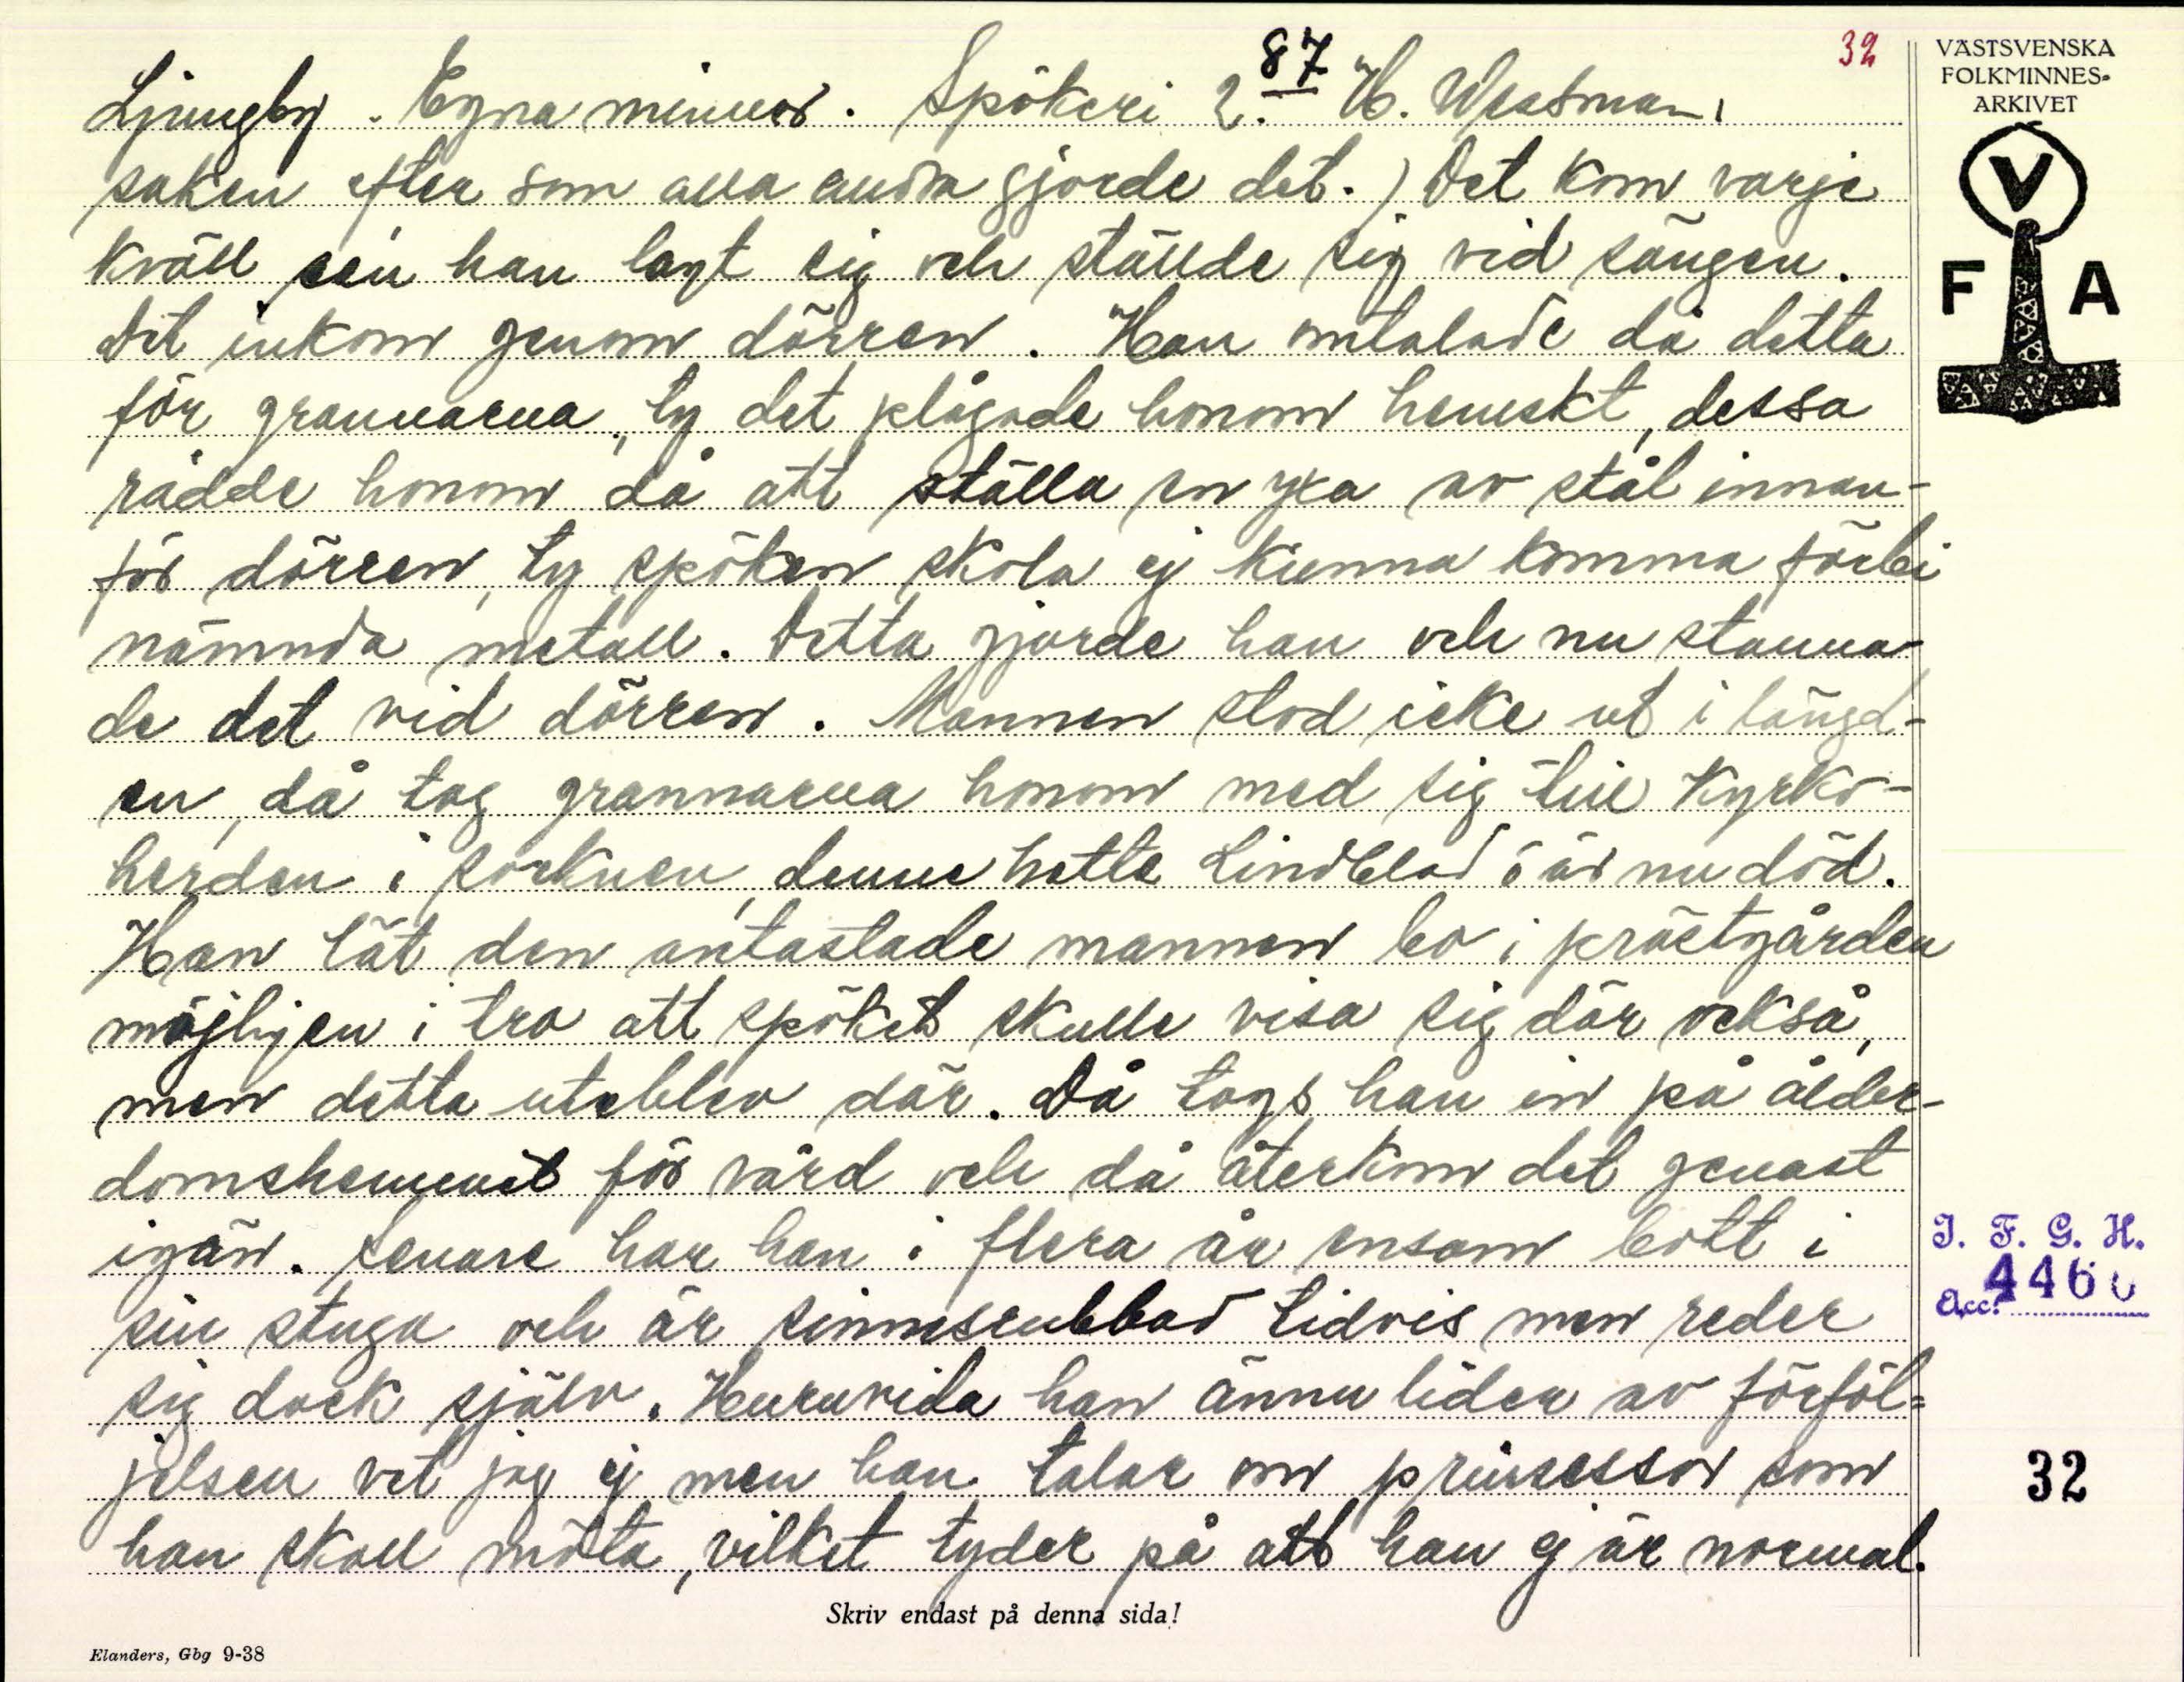 87
32
VÄSTSVENSKA
FOLKMINNES-
ARKIVET
V
F A
Ljungby. Egna minnen. Spökeri 2. H. Wessman,
saken efter som alla andra gjorde det.) Det kom varje
kväll sen han lagt sig och ställde sig vid sängen.
Det inkom genom dörren. Han omtalade då detta
för grannarna, ty det plågade honom hemskt, dessa
rådde honom då att ställa en yxa av stål innan-
för dörren, ty spöken skola ej kunna komma förbi
nämnda metall. Detta gjorde han och nu stanna-
de det vid dörren. Mannen stod icke ut i längd-
en, då tog grannarna honom med sig till kyrko-
herden i socknen, denne hette Lindblad o är nu död.
Han lät den antastade mannen bo i prästgården
möjligen i tro att spöket skulle visa sig där också,
men detta uteblev där. Då togs han in på ålder-
domshemmet för vård och då återkom det genast
igän. Senare har han i flera år ensam bott i
sin stuga och är sinnesrubbad tidvis men reder
sig dock själv. Huruvida han ännu lider av förföl=
jelsen vet jag ej men han talar om prinsessor som
han skall möta, vilket tyder på att han ej är normal.
I. F. G. H.
Acc. 4460
32
Skriv endast på denna sida!
Elanders, Gbg 9-38